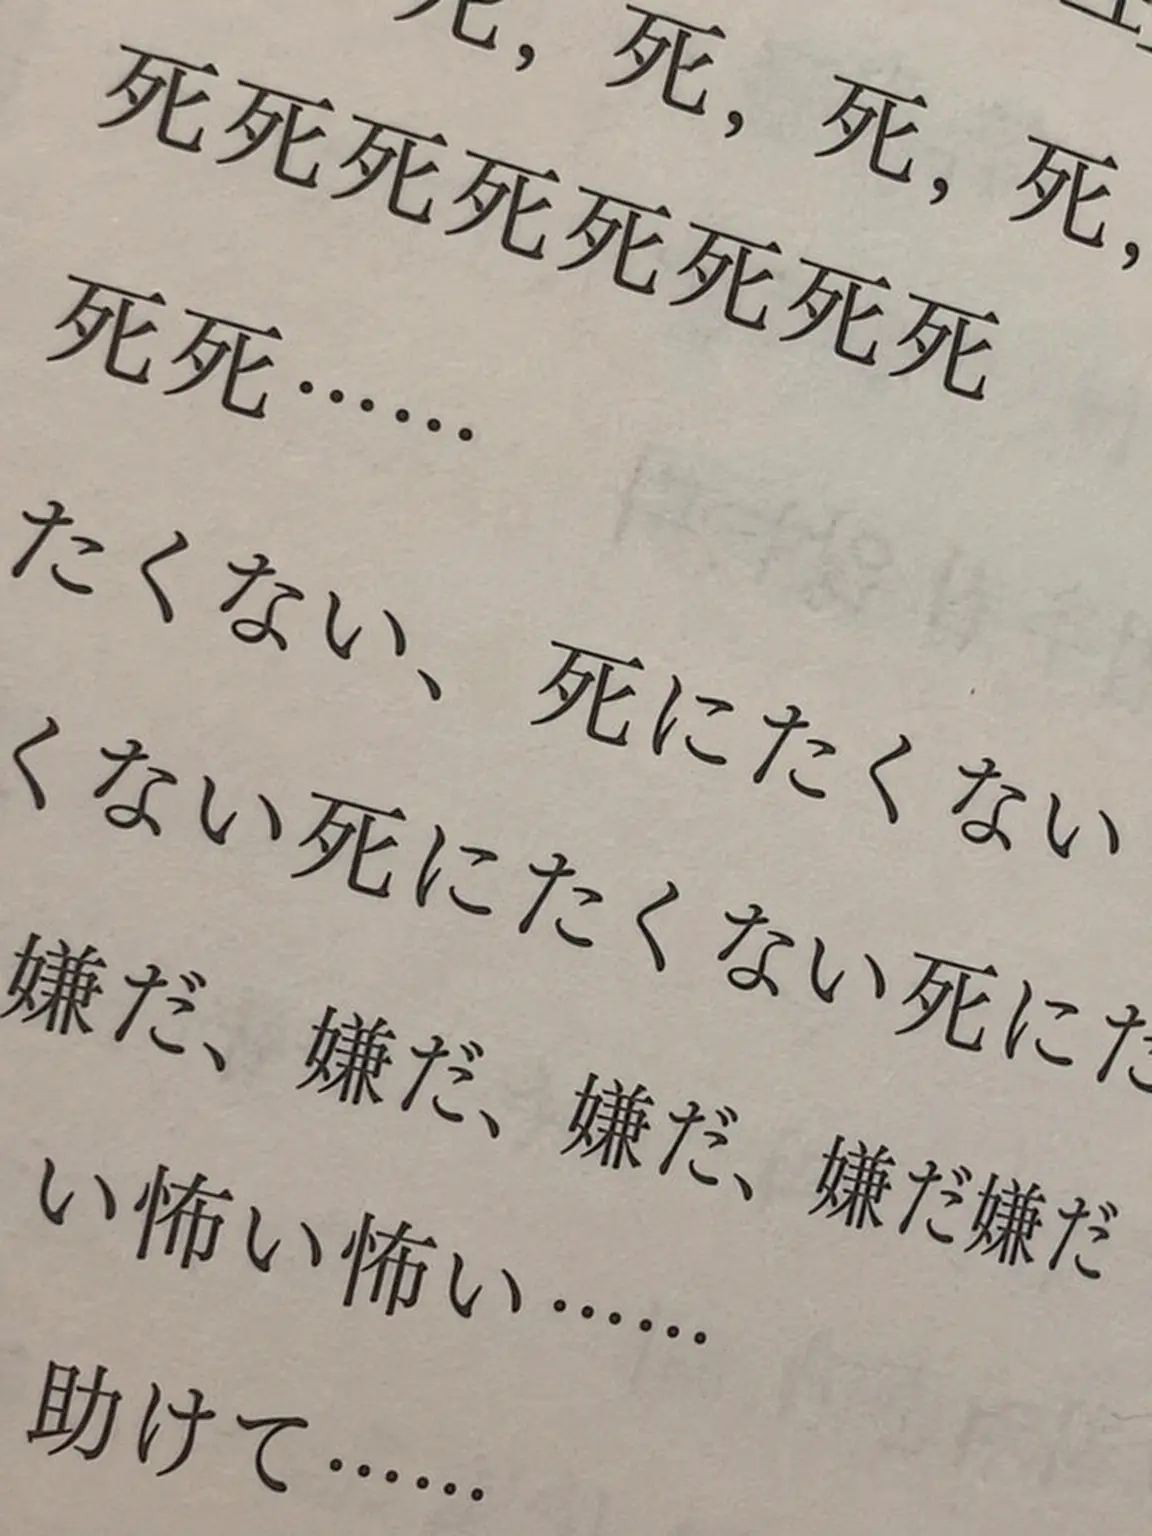 死，死，死，死，
死死死死死死死死
死死……
たくない、死にたくない
くない死にたくない死にた
嫌だ、嫌だ、嫌だ、嫌だ嫌だ
い怖い怖い……
助けて……